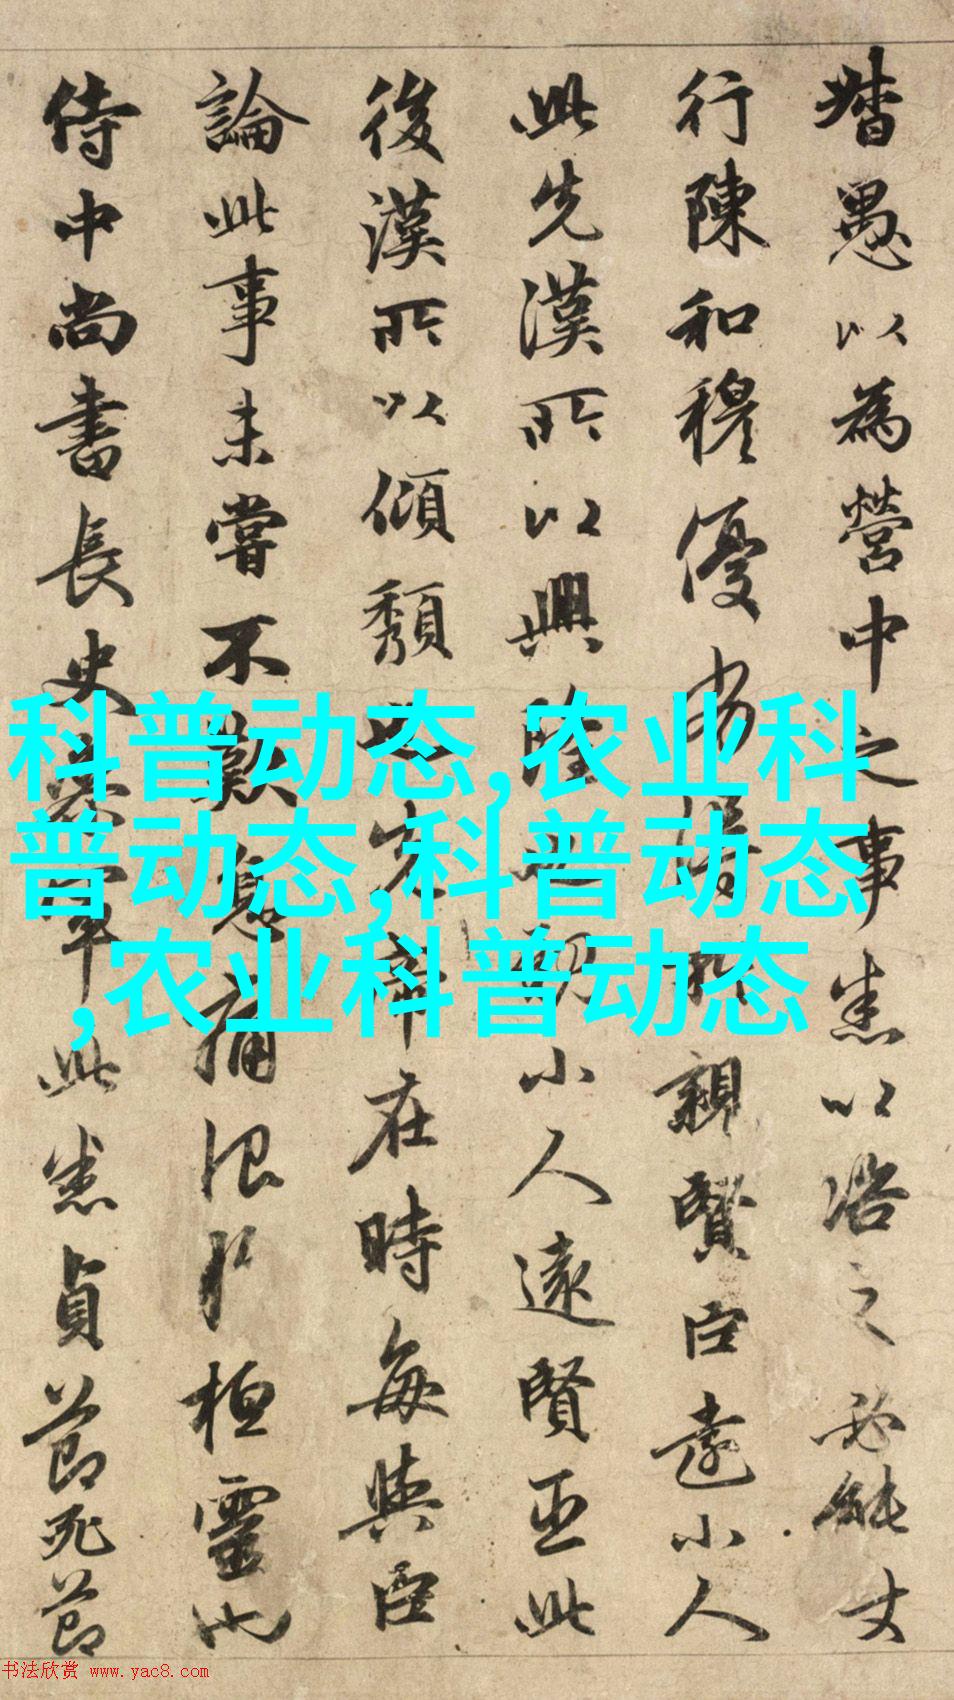 督愚以為營中之事悉以咨之必能丈
行陳和穆優劣得所親賢臣遠小人
此先漢所以興隆也親小人遠賢臣此
後漢所以傾頹也先帝在時每與臣
論此事未嘗不歎息痛恨於桓靈也
侍中尚書長史參軍此悉貞節死節
科普动态,农业科
普动态,科普动态
,农业科普动态
书法欣赏 www.yac8.com